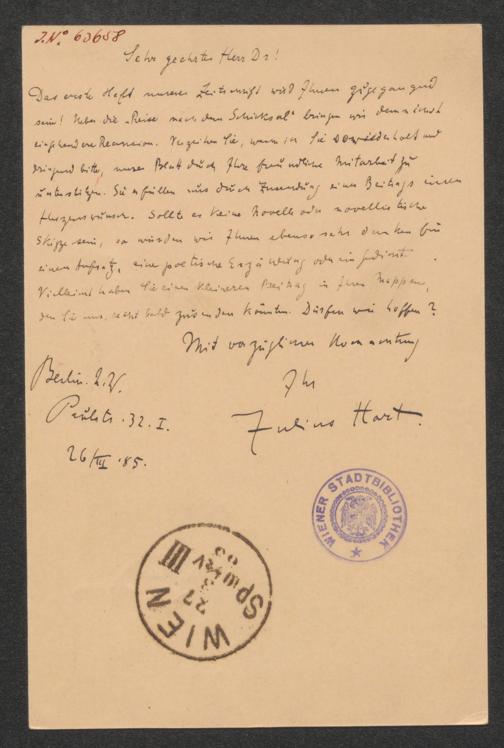 J.N. 63658
Sehr geehrter Herr Dr!
Das erste Heft unserer Zeitschrift wird Ihnen zugegangen
sein! Ueber die „Reise nach dem Schicksal" bringen wir demnächst
eingehendere Recension. Verzeihen Sie, wenn ich Sie so wiederholt und
dringend bitte, unser Blatt durch Ihre freundliche Mitarbeit zu
unterstützen. Sie erfüllen uns durch Zusendung eines Beitrags einen
Herzenswunsch. Sollte es keine Novelle oder novellistische
Skizze sein, so würden wir Ihnen ebenso sehr danken für
einen Aufsatz, eine poetische Erzählung oder ein Gedicht.
Vielleicht haben Sie einen kleineren Beitrag in Ihren Mappen,
den Sie uns recht bald zusenden könnten. Dürfen wir hoffen?
Mit vorzüglicher Hochachtung
Ihr
Julius Hart.
Berlin. N.W.
Paulstr. 32. I.
26/III. 85.
WIENER STADTBIBLIOTHEK
WIEN
27
3
III